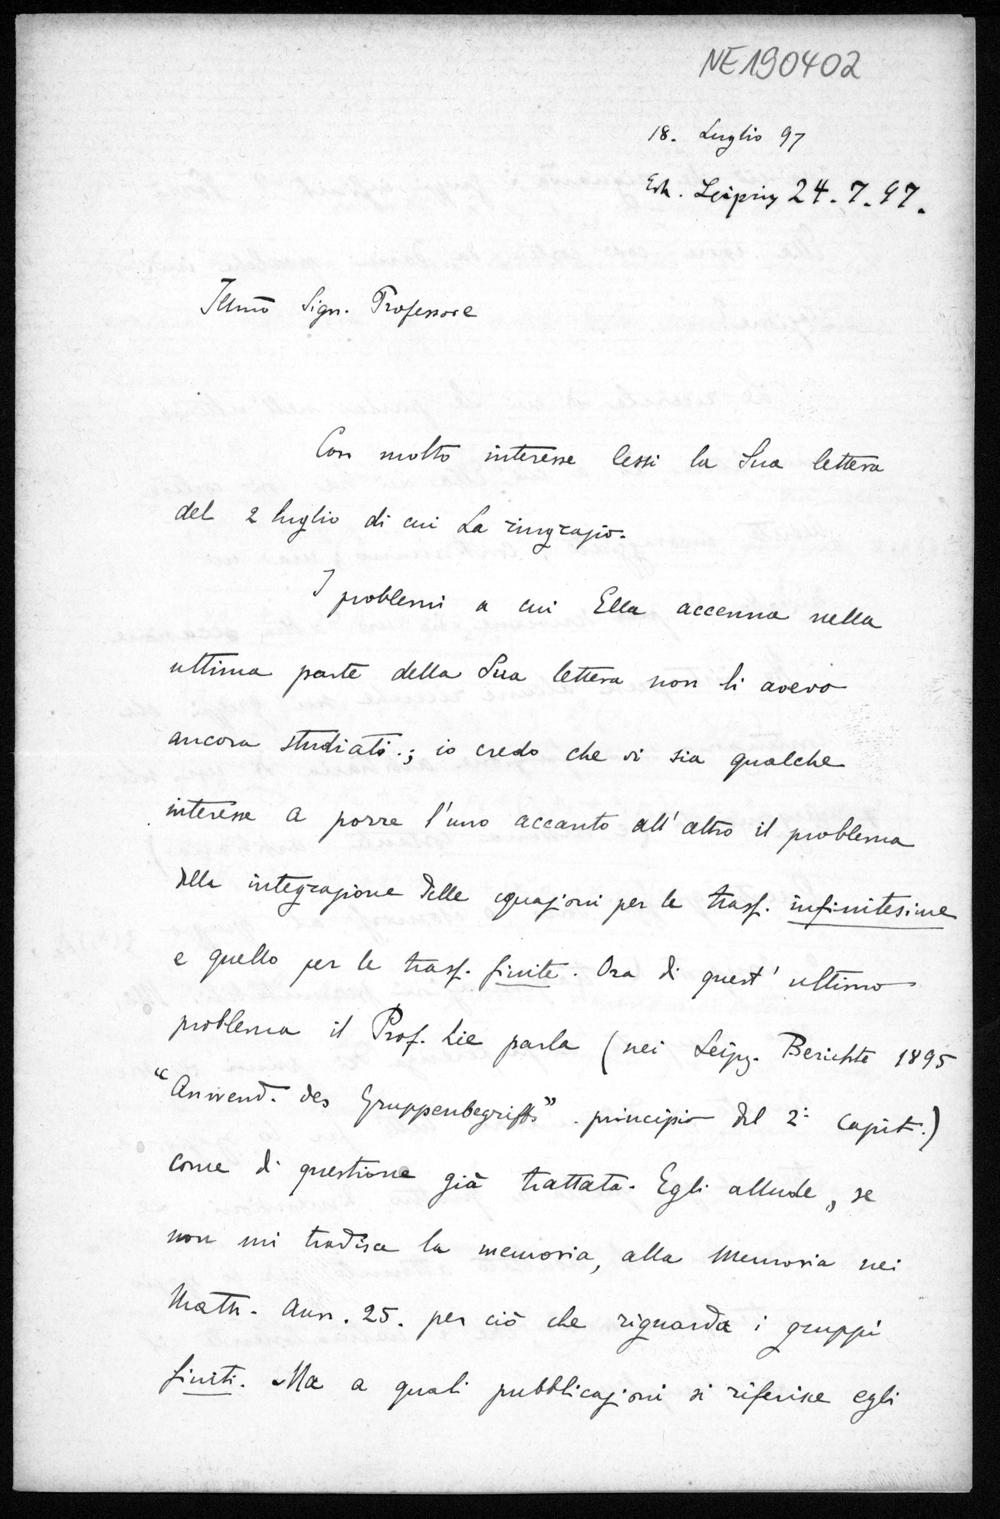 NE190402
18. Luglio 97
Erh. Leipzig 24.7.97.
Illmō Sign. Professore
Con molto interesse lessi la Sua lettera
del 2 luglio di cui La ringrazio.
I problemi a cui Ella accenna nella
ultima parte della Sua lettera non li avevo
ancora studiati.; io credo che vi sia qualche
interesse a porre l'uno accanto all'altro il problema
della integrazione delle equazioni per le trasf. infinitesime
e quello per le trasf. finite. Ora di quest'ultimo
problema il Prof. Lie parla (nei Leipz. Berichte 1895
"Anwend. des Gruppenbegriffs" . principio del 2º Capit.)
come di questione già trattata. Egli allude, se
non mi tradisce la memoria, alla Memoria nei
Math. Ann. 25. per ciò che riguarda i gruppi
finiti. Ma a quali pubblicazioni si riferisce egli